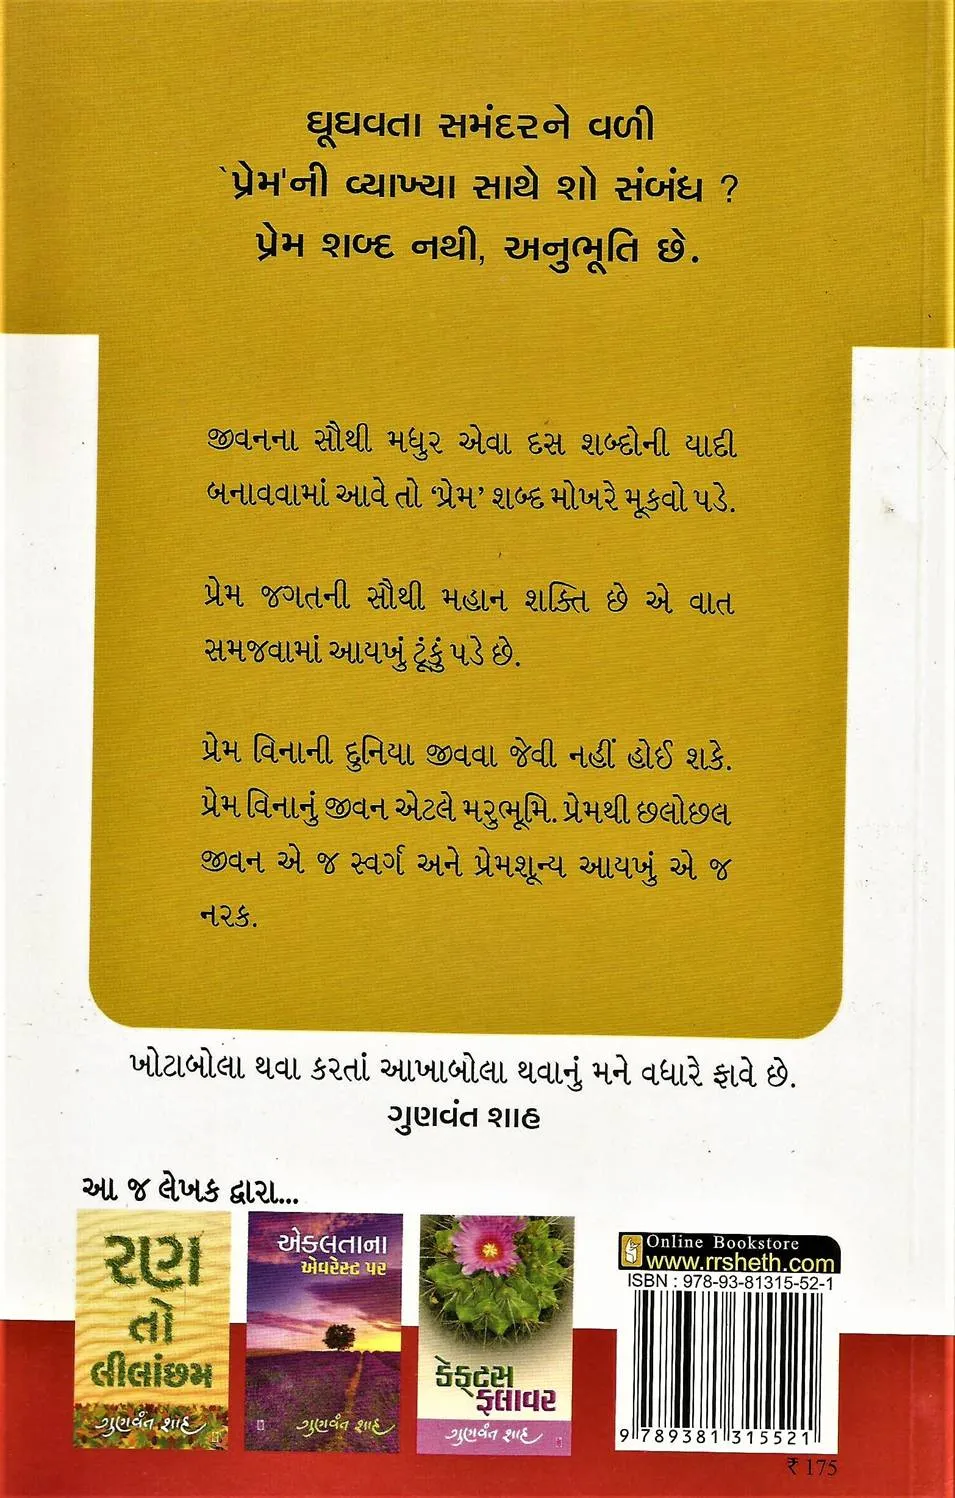 ઘૂઘવતા સમંદરને વળી
`પ્રેમ'ની વ્યાખ્યા સાથે શો સંબંધ ?
પ્રેમ શબ્દ નથી, અનુભૂતિ છે.
જીવનના સૌથી મધુર એવા દસ શબ્દોની યાદી
બનાવવામાં આવે તો ‘પ્રેમ’ શબ્દ મોખરે મૂકવો પડે.
પ્રેમ જગતની સૌથી મહાન શક્તિ છે એ વાત
સમજવામાં આયખું ટૂંકું પડે છે.
પ્રેમ વિનાની દુનિયા જીવવા જેવી નહીં હોઈ શકે.
પ્રેમ વિનાનું જીવન એટલે મરુભૂમિ. પ્રેમથી છલોછલ
જીવન એ જ સ્વર્ગ અને પ્રેમશૂન્ય આયખું એ જ
નરક.
ખોટાબોલા થવા કરતાં આખાબોલા થવાનું મને વધારે ફાવે છે.
ગુણવંત શાહ
આ જ લેખક દ્વારા...
રણ
તો
લીલાંછમ
ગુણવંત શાહ
એકલતાના
એવરેસ્ટ પર
ગુણવંત શાહ
કેક્ટસ
ફ્લાવર
ગુણવંત શાહ
Online Bookstore
www.rrsheth.com
ISBN : 978-93-81315-52-1
9 789381 315521
₹ 175